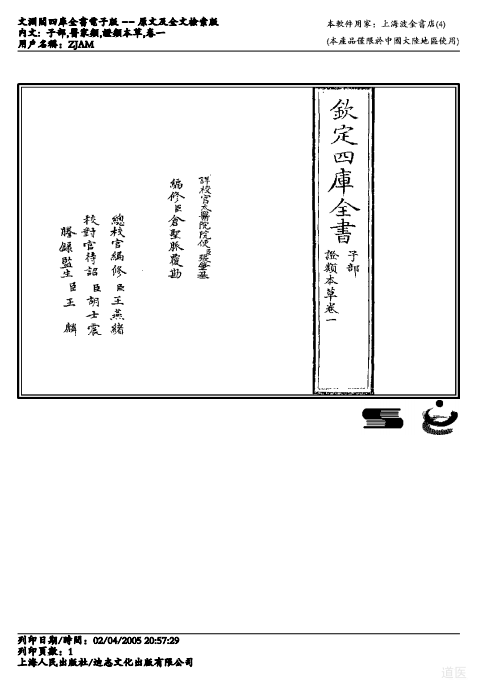 文淵閣四庫全書電子版 -- 原文及全文檢索版
內文: 子部,醫家類,證類本草,卷一
用戶名稱: ZJAM
本軟件用家: 上海波全書店(4)
(本產品僅限於中國大陸地區使用)
欽定四庫全書
子部
證類本草卷一
詳校官太醫院院使臣張肇基
編修臣倉聖脈覆勘
總校官編修臣王燕緒
校對官待詔臣胡士震
謄錄監生臣王麟
列印日期/時間: 02/04/2005 20:57:29
列印頁數: 1
上海人民出版社/迪志文化出版有限公司
道医